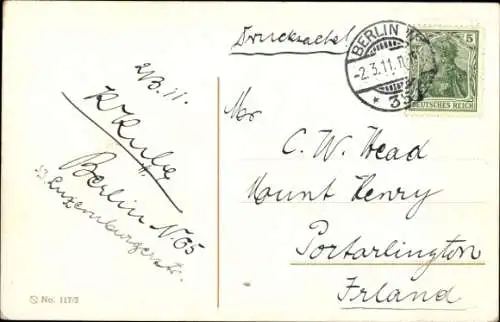 Drucksache!
BERLIN W
-2.3.11.11
* 35
5
DEUTSCHES REICH
2/3.11.
Berlin N.65
33 Luxemburgerstr.
Mr
C. W. Head
Mount Henry
Portarlington
Irland
No. 117/2